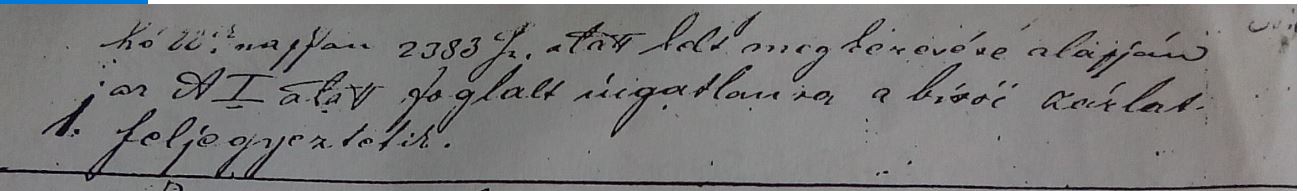 hó 22ik napján 2383 sz. alatt kelt megkeresése alapján
az A I alatt foglalt ingatlanra a birói zárlat
1. feljegyeztetik.